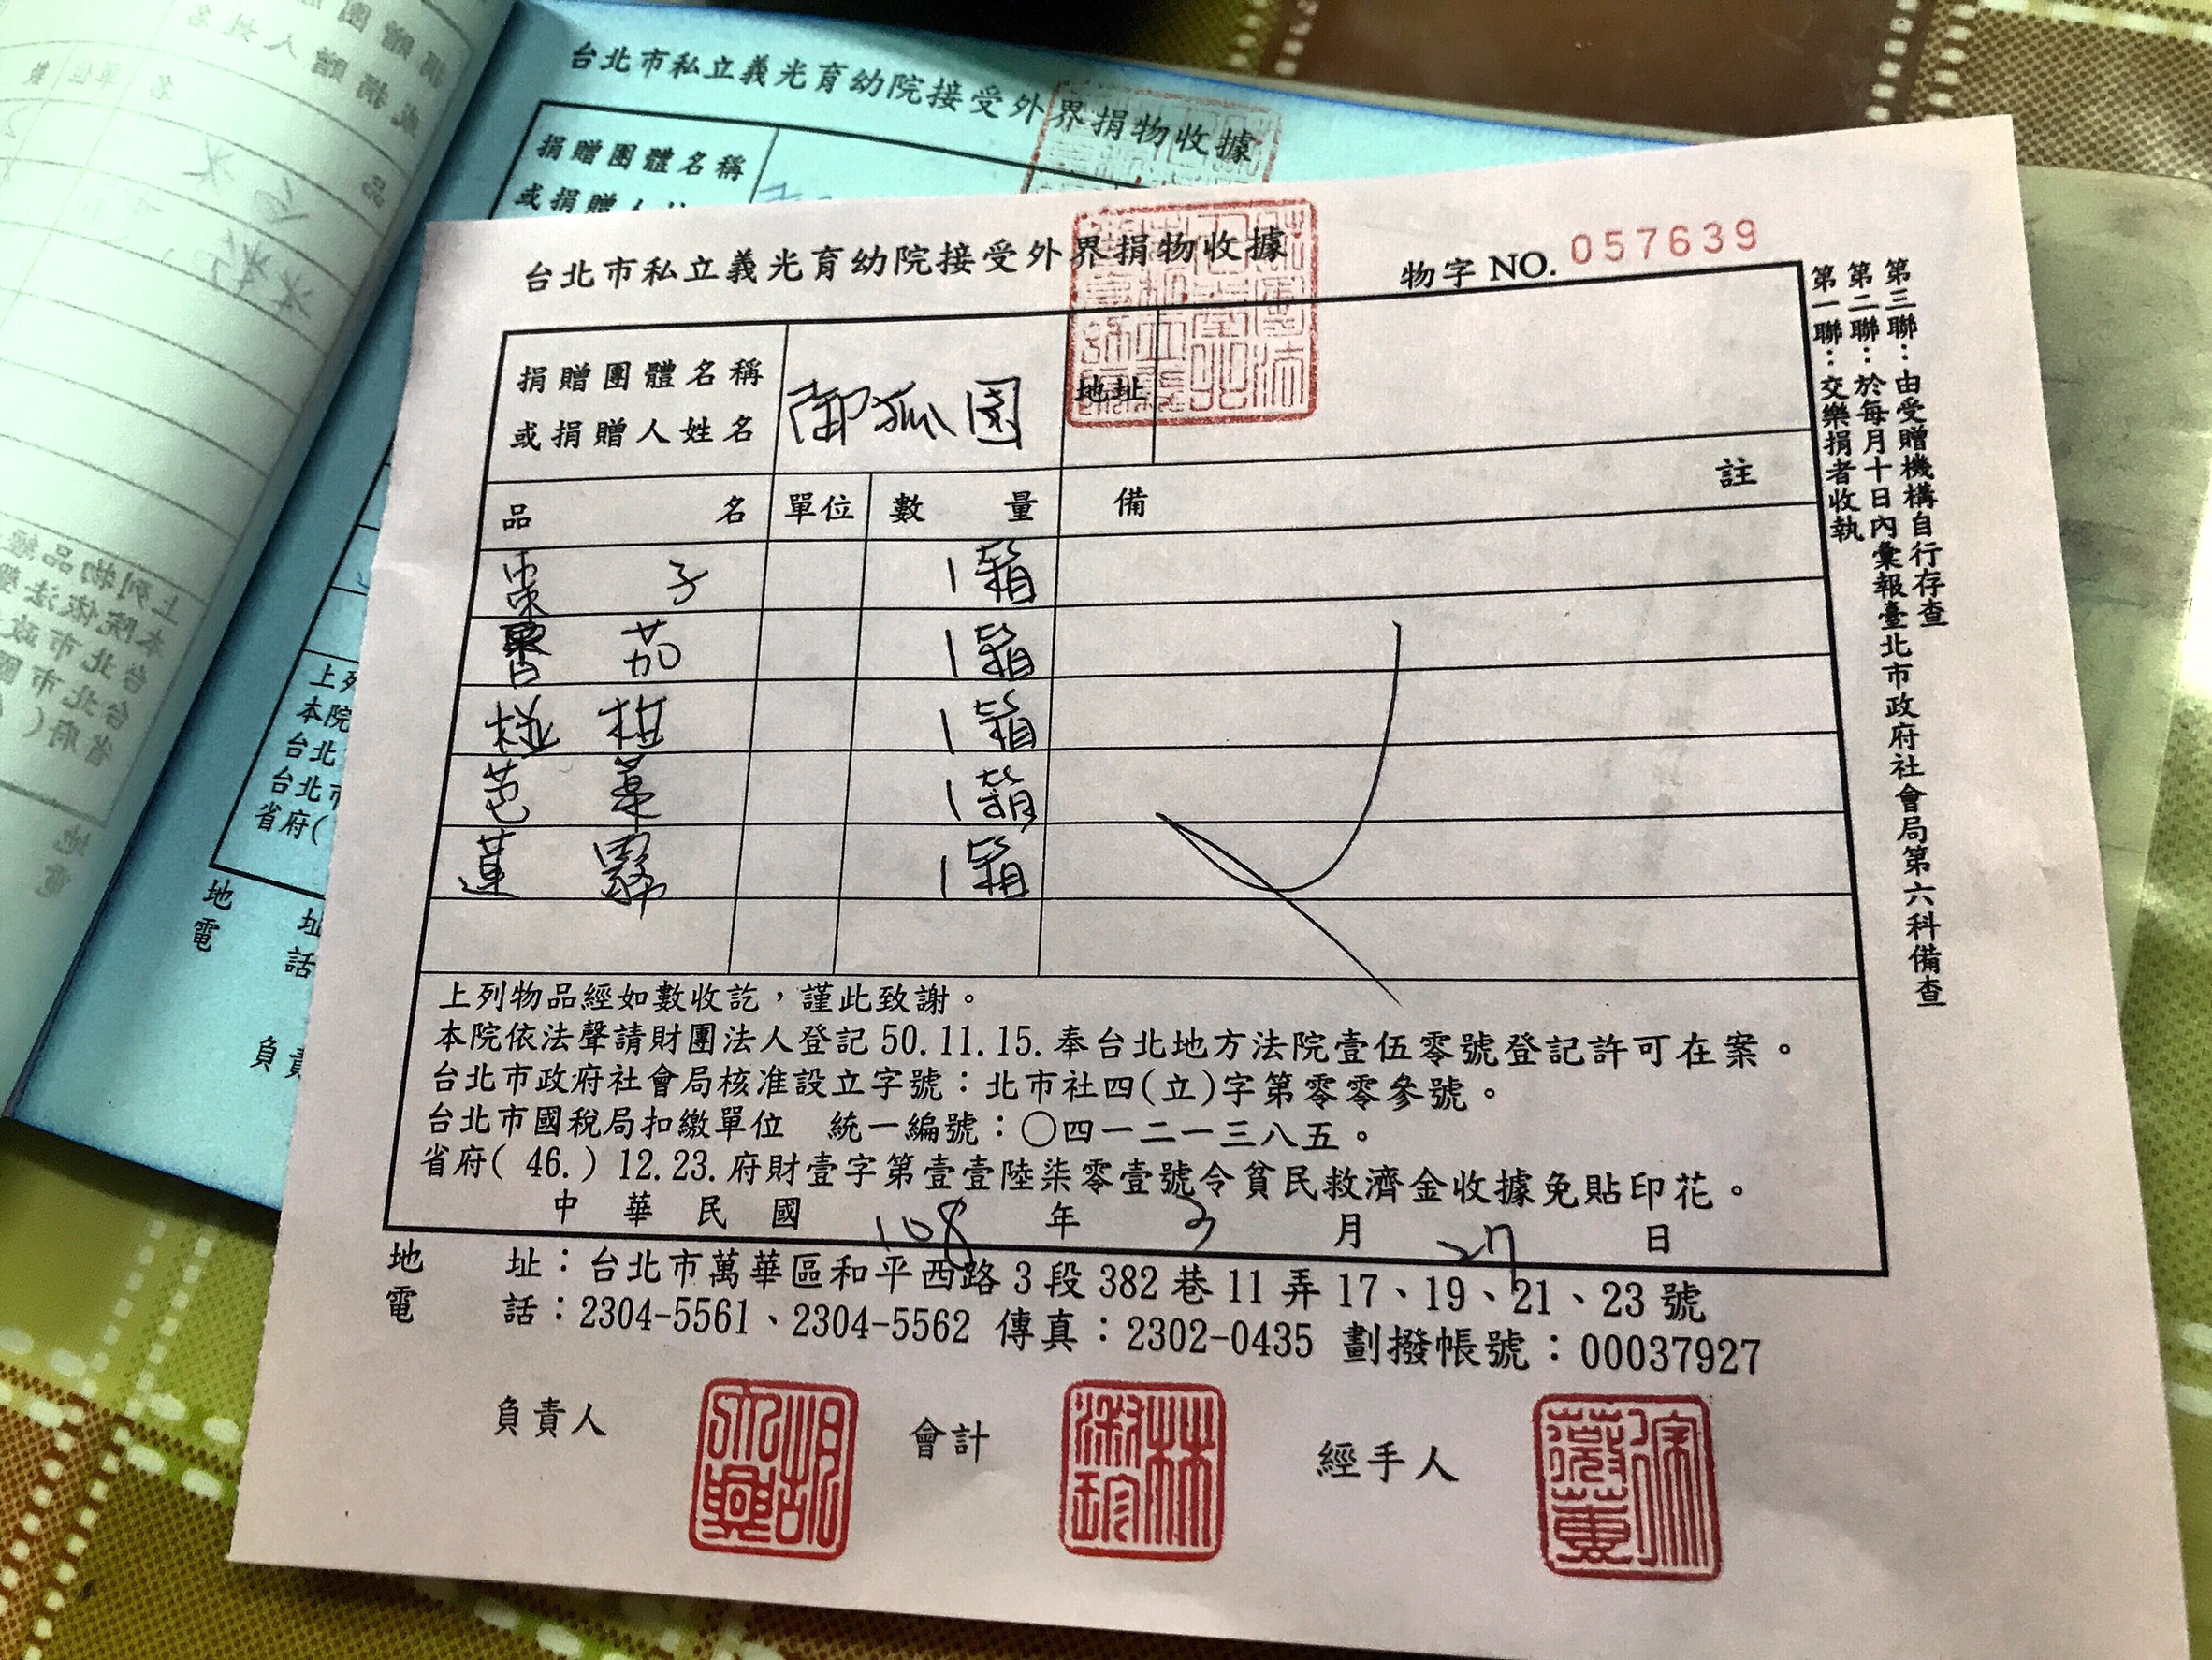 台北市私立義光育幼院接受外界捐物收據
捐贈團體名稱
台北市私立義光育幼院接受外界捐物收據
物字 NO. 057639
捐贈團體名稱
或捐贈人姓名
御狐園
地址
品名 單位 數量 備註
棗子 1箱
蕃茄 1箱
椪柑 1箱
芭藥 1箱
蓮霧 1箱
上列物品經如數收訖，謹此致謝。
本院依法聲請財團法人登記50.11.15.奉台北地方法院壹伍零號登記許可在案。
台北市政府社會局核准設立字號：北市社四(立)字第零零參號。
台北市國稅局扣繳單位 統一編號：○四一二一三八五。
省府( 46.) 12.23.府財壹字第壹壹陸柒零壹號令貧民救濟金收據免貼印花。
中華民國 108 年 3 月 27 日
地址：台北市萬華區和平西路3段382巷11弄17、19、21、23號
電話：2304-5561、2304-5562 傳真：2302-0435 劃撥帳號：00037927
負責人 會計 經手人
第一聯：交樂捐者收執
第二聯：於每月十日內彙報臺北市政府社會局第六科備查
第三聯：由受贈機構自行存查
上列
本院
台北
台北市
省府(
地址
電話
負責